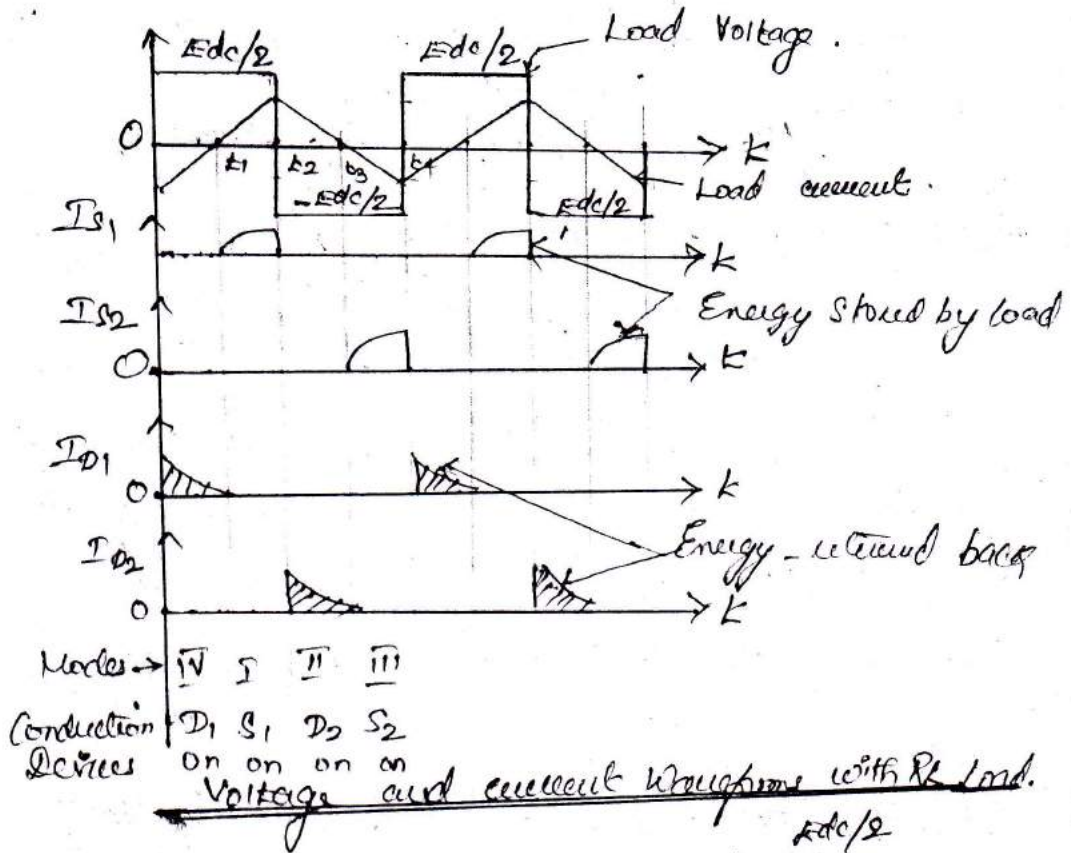 Edc/2 Edc/2 Load Voltage.
0 t1 t2 t3 t4 t
-Edc/2 Edc/2 Load current.
IS1 t
Energy stored by load
IS2
0 t
ID1
0 t
Energy returned back
ID2
0 t
Modes → IV I II III
Conduction D1 S1 D2 S2
Devices on on on on
Voltage and current waveforms with RL Load.
Edc/2